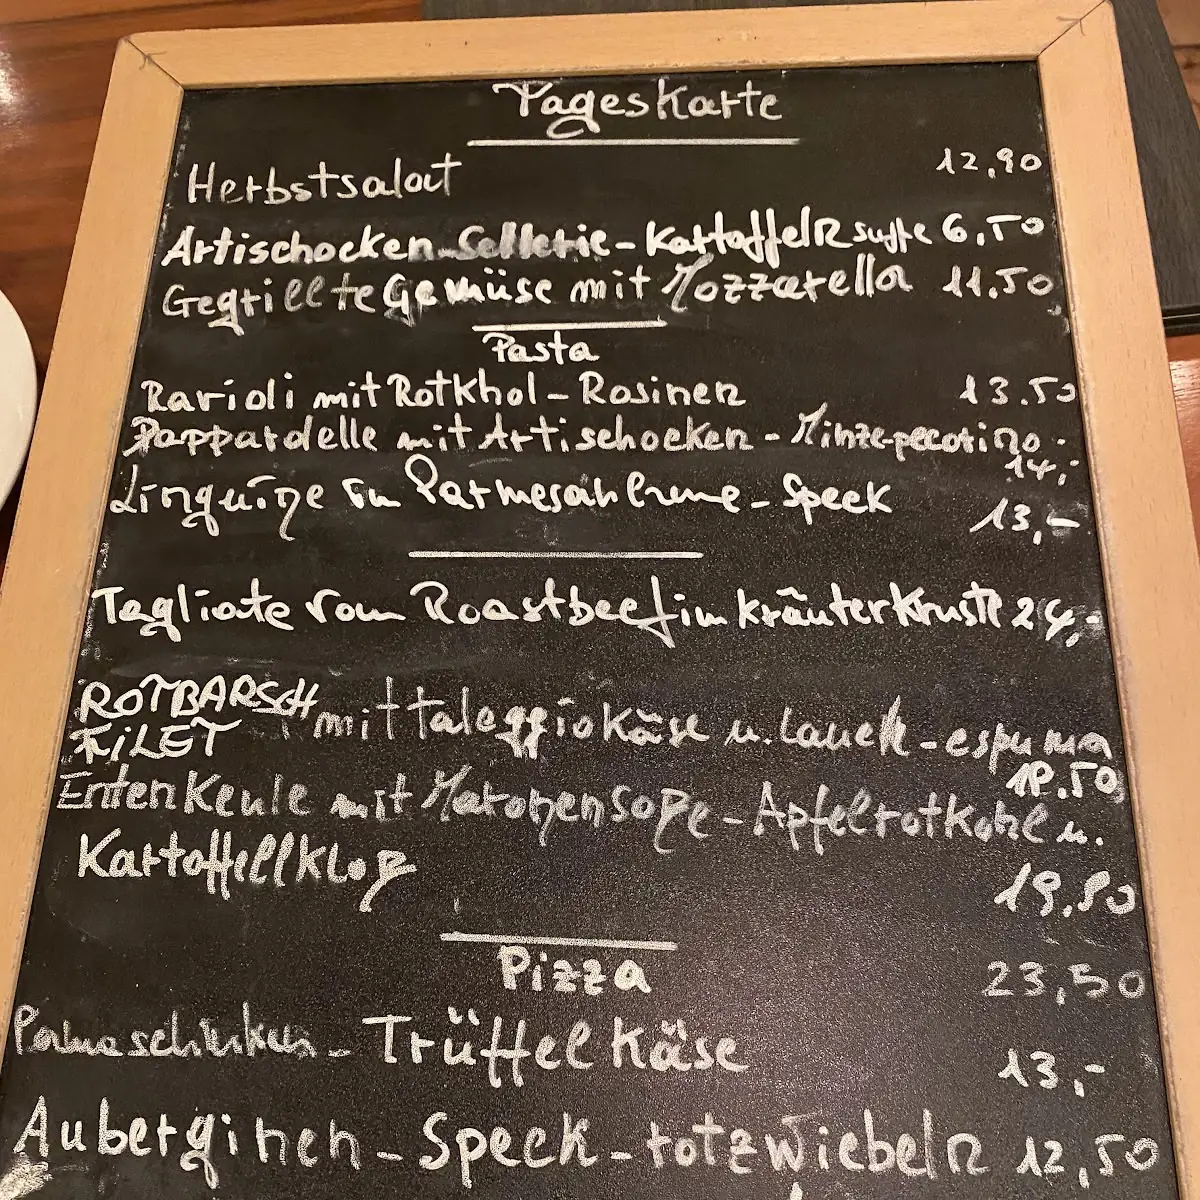 Tageskarte
Herbstsalat 12,90
Artischocken-Sellerie-Kartoffelnsuppe 6,50
Gegrillte Gemüse mit Mozzarella 11.50
Pasta
Ravioli mit Rotkhol-Rosinen 13.50
Pappardelle mit Artischocken-Minze-pecorino
14,-
Linguine in Parmesancreme-Speck 13,-
Tagliate vom Roastbeef im kräuterkruste 24,-
ROTBARSCH mit taleggiokäse u. lauch-espuma
FiLET 18.50
Entenkeule mit Maronensoße-Apfelrotkohl u.
Kartoffellkloß 19,80
Pizza 23,50
Parmaschinken-Trüffelkäse 13,-
Auberginen-Speck-rotzwiebeln 12,50